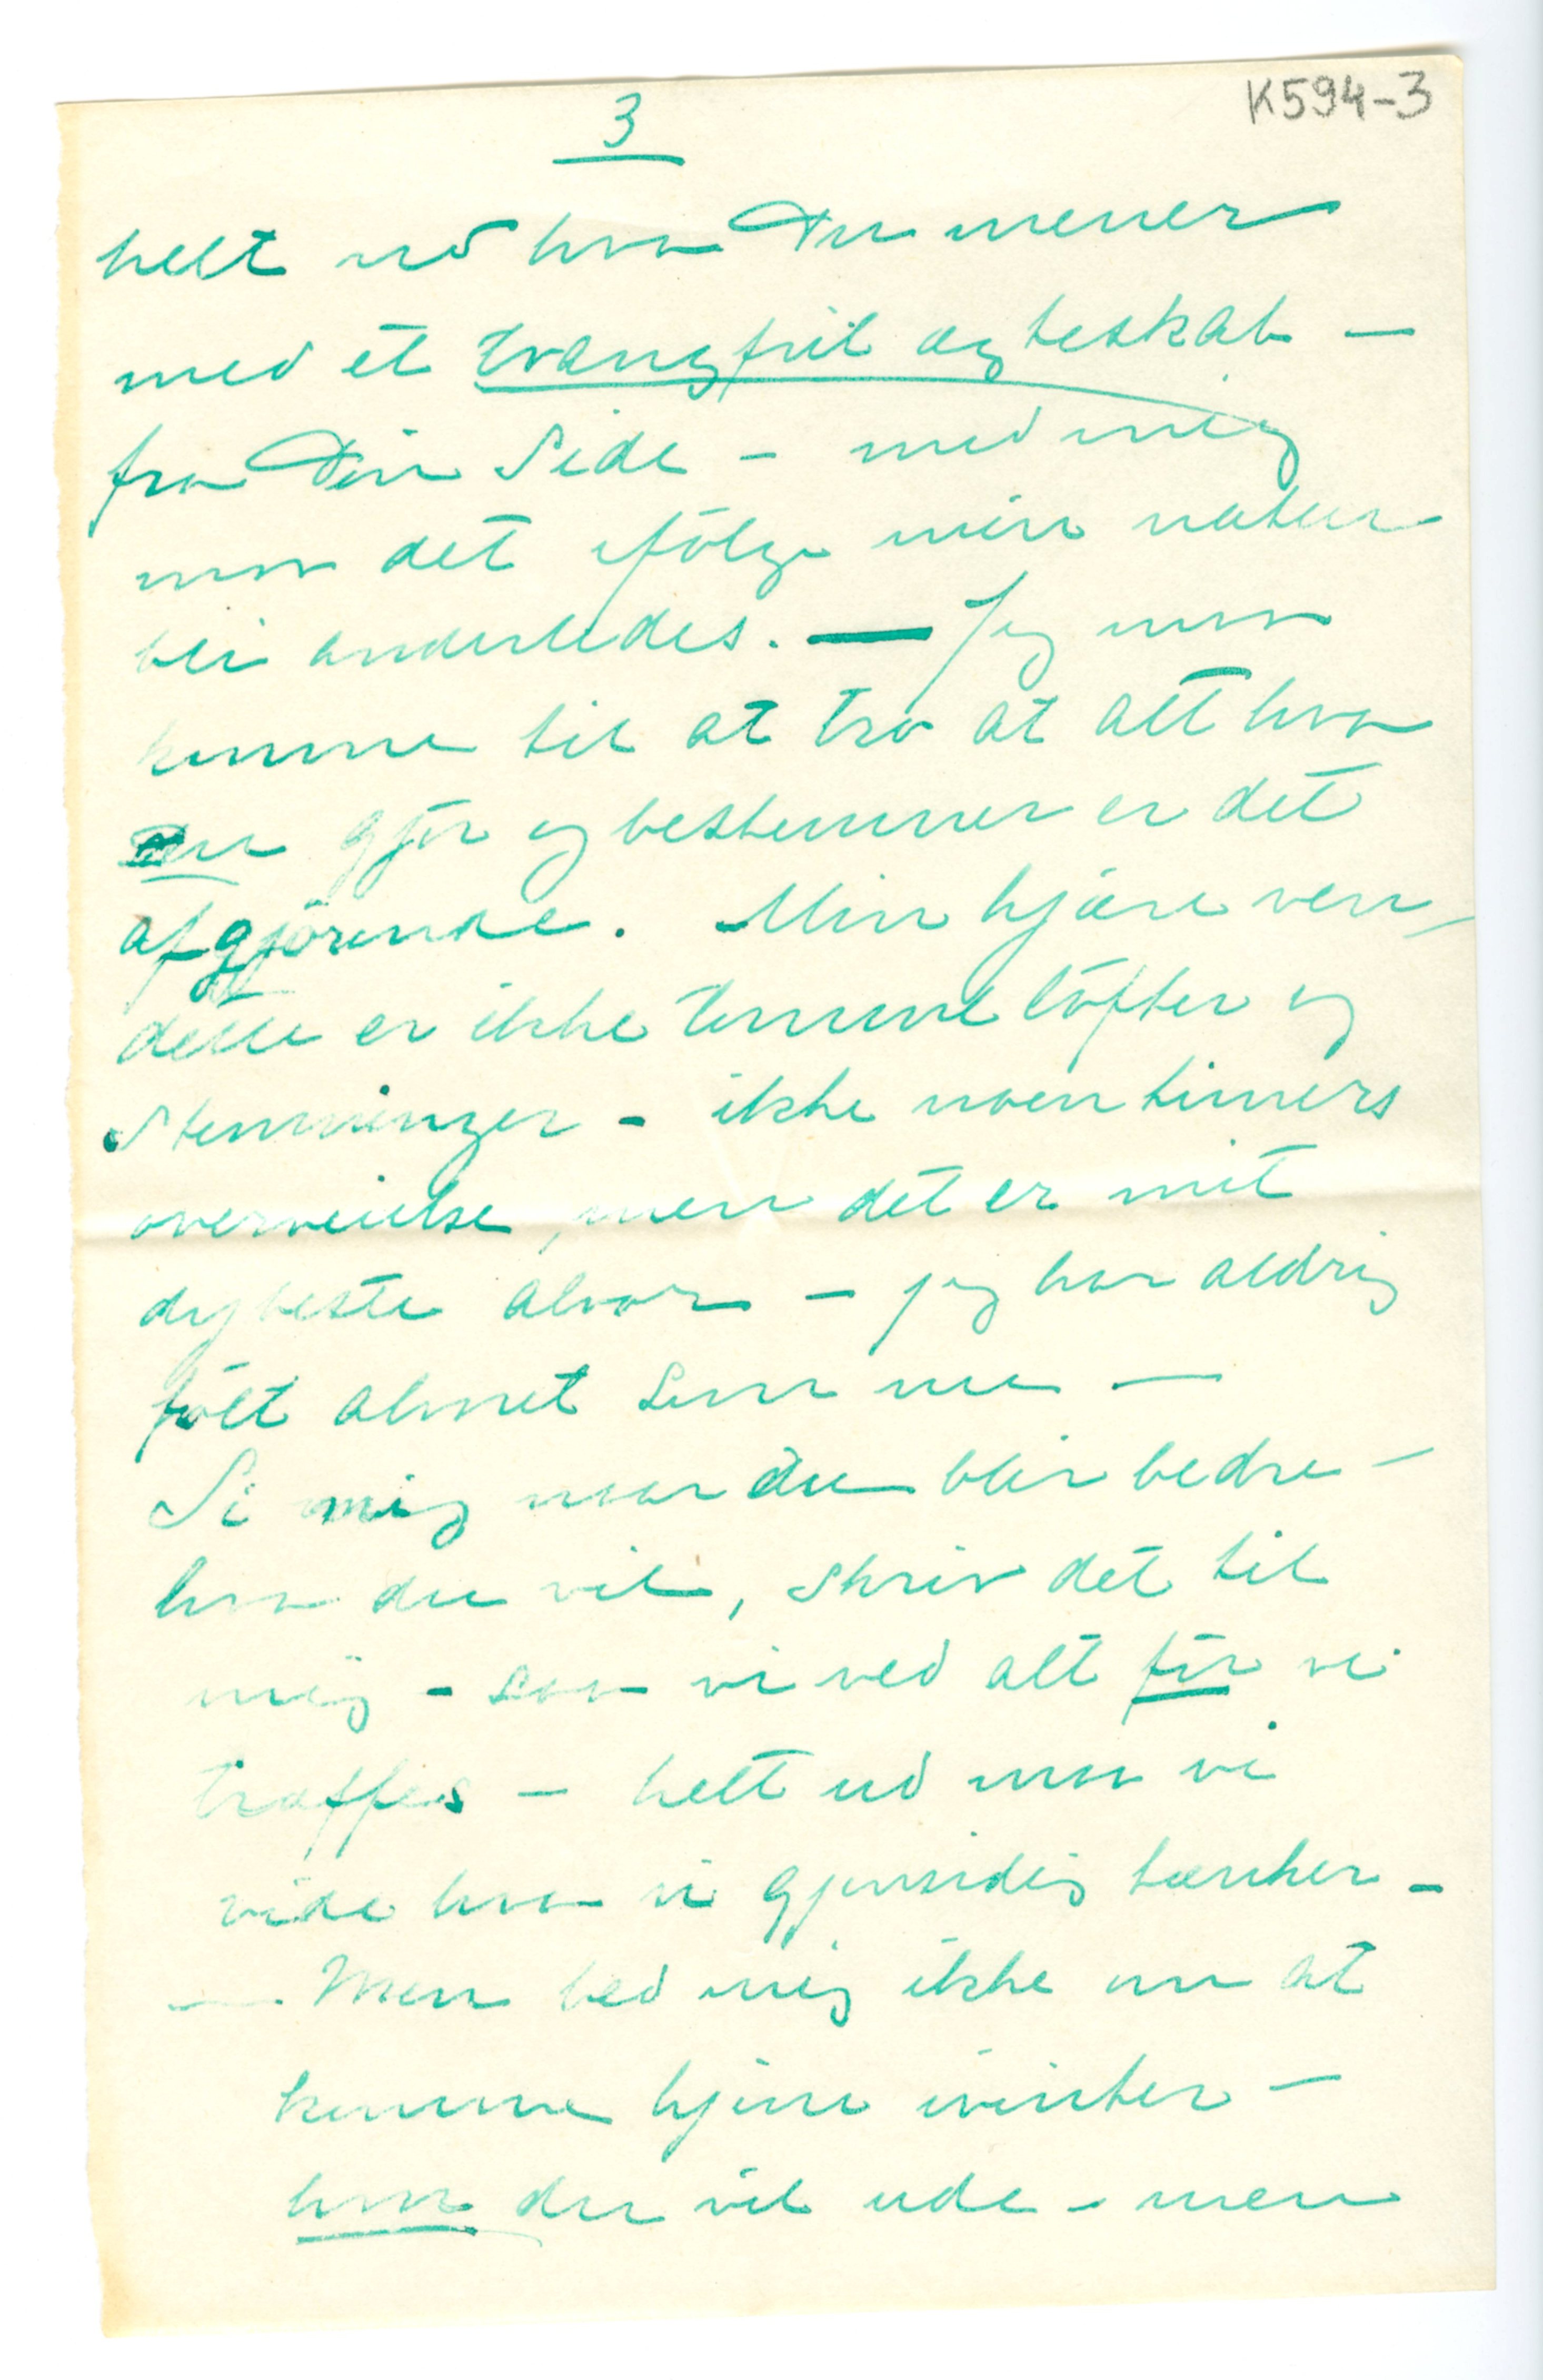 K594-3
3
helt ud hva Du mener
med et tvangfrit ægteskab —
fra Din Side – med mig
maa det ifölge min natur
bli anderledes. — Jeg maa
komme til at tro at alt hva
Du gjör og bestemmer er det
afgjörende. Min kjære ven,
dette er ikke tomme löfter og
stemninger – ikke noen timers
overveielse, men det er mit
dybeste alvor – jeg har aldrig
fölt alvoret som nu —
Si mig naar du blir bedre –
hva du vil, skriv det til
mig – saa vi ved alt för vi
træffes – helt ud maa vi
vide hva vi gjensidig tænker –
— Men bed mig ikke om at
komme hjem ivinter –
hvor du vil ude – men